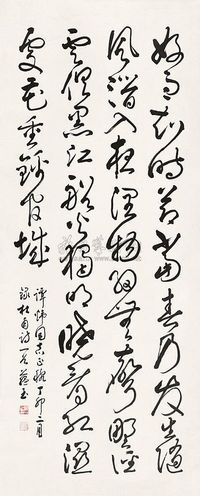 好雨知時節當春乃發生隨
風潛入夜潤物細無聲野徑
雲俱黑江船火獨明曉看紅濕
處花重錦官城
同志正腕丁卯
錄杜甫詩一首